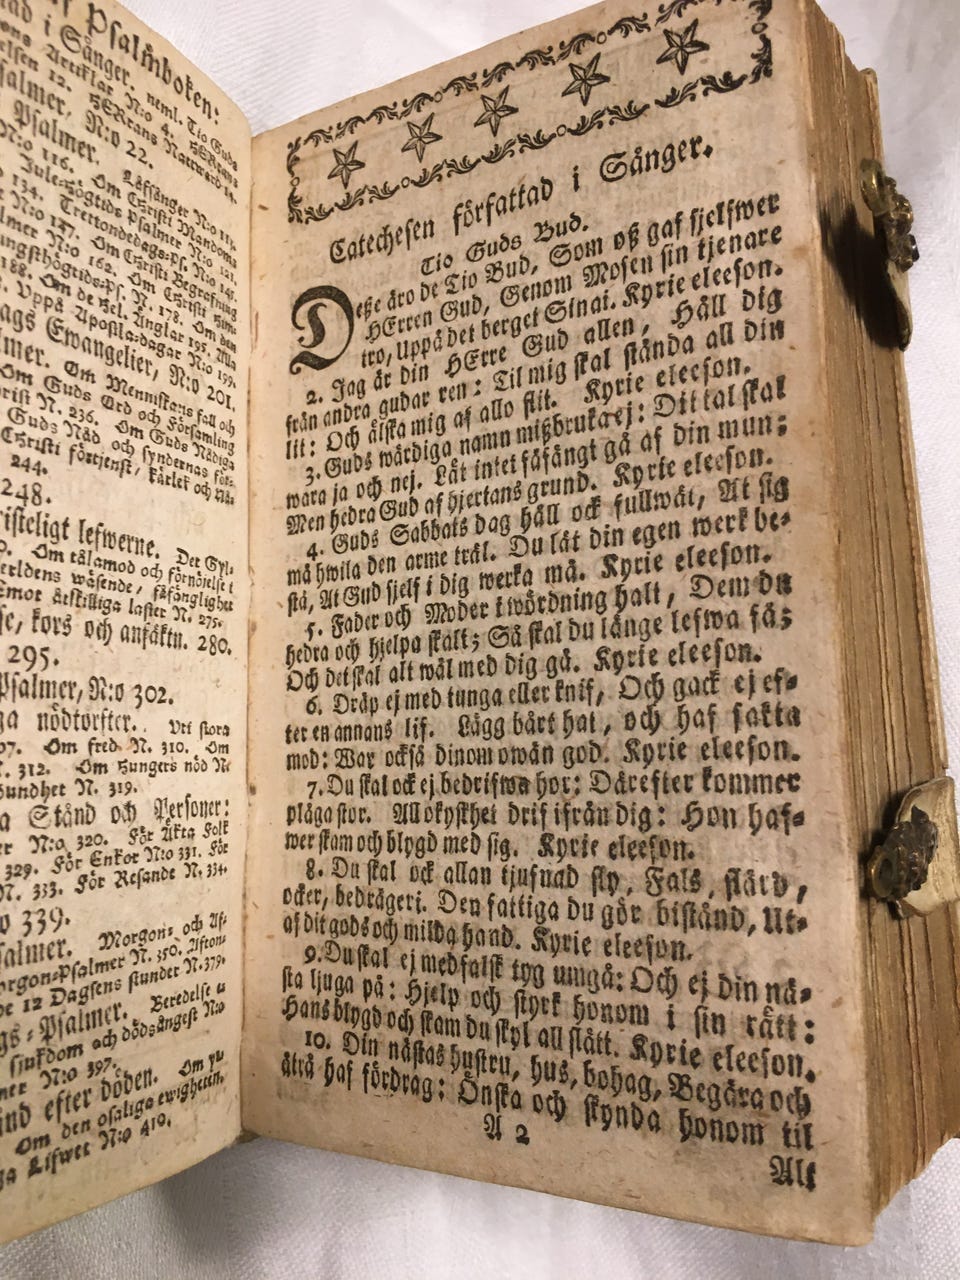 Psalmboken:
i Sånger. neml. Tio Guds
Artiklar N:o 4. HERrans
12. HERrans Nattward 14.
Psalmer, N:o 22.
Psalmer. Låffsånger N:o 113.
N:o 116. Om Christi Mandom
Jule-Högtids Psalmer N:o 121.
134. Trettondedags-ps. N:o 146.
N:o 147. Om Christi Begrafning
N:o 162. Om Christi
ps. N. 178. Om den
188. Om de Hel. Änglar 195. Alla
Uppå Apostla-dagar N:o 199.
Ewangelier, N:o 201.
Om Menniskans fall och
Om Guds Ord och Församling
N. 236. Om Guds Nådiga
Guds Nåd och syndernas
Christi förtjenst, kärlek och
244.
248.
lefwerne. Det
Om tålamod och förnöjelse i
wäsende, fåfänglighet
åtskilliga laster N. 275.
kors och anfäktn. 280.
295.
Psalmer, N:o 302.
nödtorfter. Uti stora
Om fred N. 310. Om
N. 312. Om Hungers nöd N:
N. 319.
Stånd och Personer:
N:o 320. För Äkta Folk
329. För Enkor N:o 331. För
N. 333. För Resande N. 334.
339.
Morgon- och Af-
Morgon-Psalmer N. 350. Afton-
12 Dagsens stunder N. 379.
Psalmer. Beredelse
sjukdom och dödsångest N:o
N:o 397.
efter döden. Om
Om den osaliga ewigheten,
Lifwet N:o 410.
Catechesen författad i Sånger.
Tio Guds Bud.
Deße äro de Tio Bud, Som oß gaf sjelfwer
HErren Gud, Genom Mosen sin tjenare
tro, Uppå det berget Sinai. Kyrie eleeson.
2. Jag är din HErre Gud allen, Håll dig
från andra gudar ren: Til mig skal stånda all din
lit: Och älska mig af allo flit. Kyrie eleeson.
3. Guds wärdiga namn mißbruka ej: Dit tal skal
wara ja och nej. Låt intet fåfängt gå af din mun:
Men hedra Gud af hjertans grund. Kyrie eleeson.
4. Guds Sabbats dag håll ock fullwäl, At sig
må hwila den arme träl. Du låt din egen werk be-
stå, At Gud sjelf i dig werka må. Kyrie eleeson.
5. Fader och Moder i wördning halt, Dem du
hedra och hjelpa skalt; Så skal du länge lefwa få:
Och det skal alt wäl med dig gå. Kyrie eleeson.
6. Dräp ej med tunga eller knif, Och gack ej ef-
ter en annans lif. Lägg bårt hat, och haf sakta
mod: War också dinom owän god. Kyrie eleeson.
7. Du skal ock ej bedrifwa hor: Därefter kommer
plåga stor. All okyskhet drif ifrån dig: Hon haf-
wer skam och blygd med sig. Kyrie eleeson.
8. Du skal ock allan tjufnad fly, Fals, flärd,
ocker, bedrägeri. Den fattiga du gör bistånd, Ut-
af dit gods och milda hand. Kyrie eleeson.
9. Du skal ej med falsk tyg umgå: Och ej din nä-
sta ljuga på: Hjelp och styrk honom i sin rätt:
Hans blygd och skam du skyl all slätt. Kyrie eleeson.
10. Din nästas hustru, hus, bohag, Begära och
åtrå haf fördrag: Önska och skynda honom til
A 2
Alt